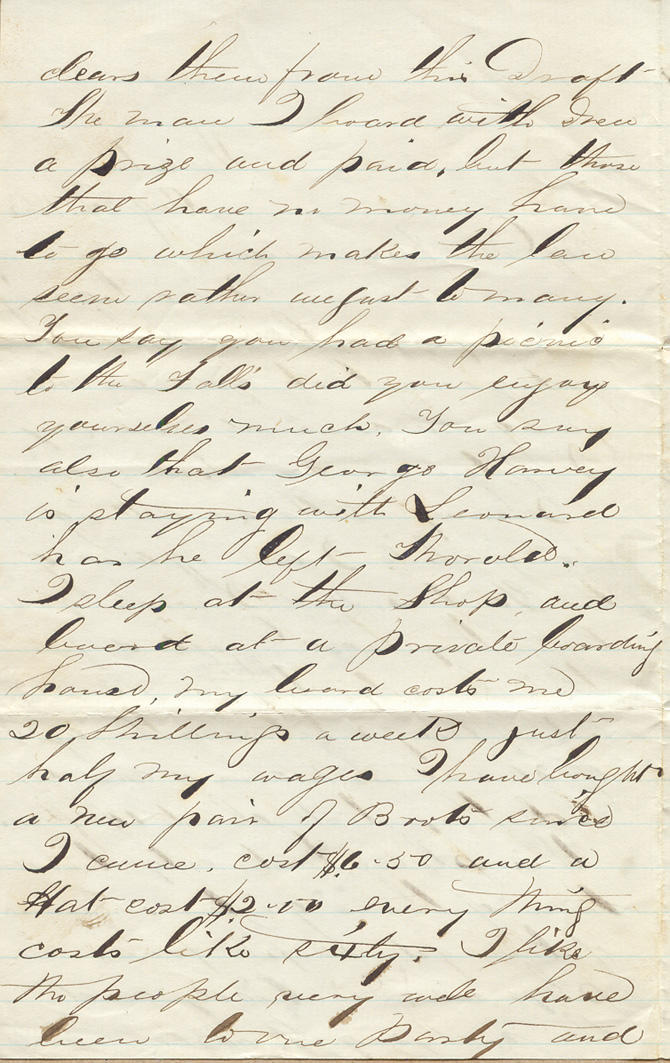 clears them from this Draft
The man I board with Drew
a prize and paid, but those
that have no money have
to go which makes the law
seem rather unjust to many.
You say you had a picnic
to the Falls did you enjoy
yourselves much. You say
also that George Harvey
is staying with Leonard
has he left Thorold.
I sleep at the Shop and
board at a private boarding
house, my board costs me
20 Shillings a week just
half my wages I have bought
a new pair of Boots since
I came. cost $6.50 and a
Hat cost $2.00 every thing
costs like sixty. I like
the people very well have
been to one Party and